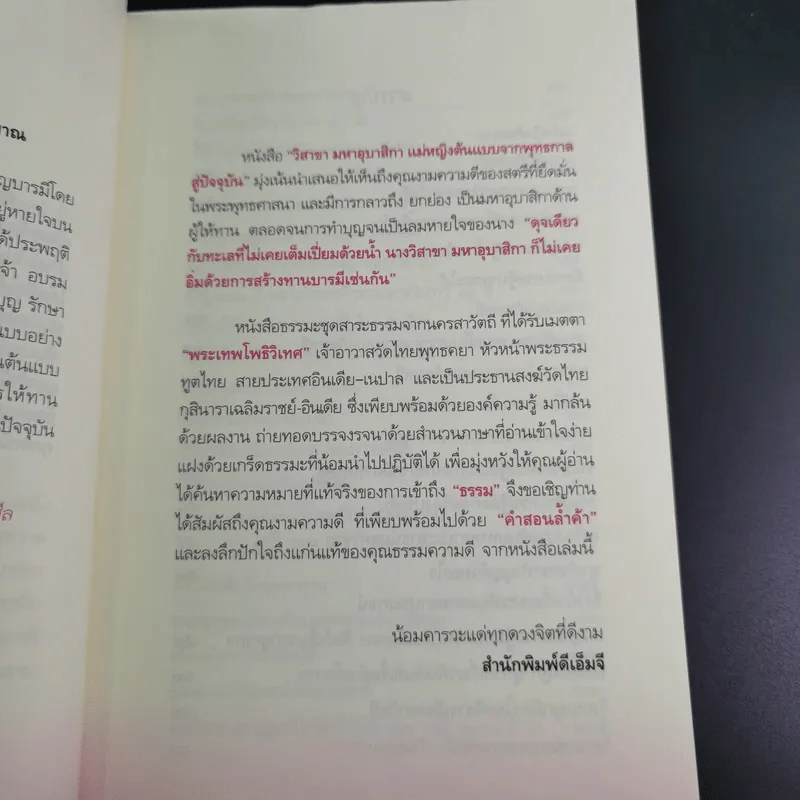 าณ
ญบารมีโดย
ยู่หายใจบน
ด้ประพฤติ
จ้า อบรม
บุญ รักษา
แบบอย่าง
นต้นแบบ
รให้ทาน
ปัจจุบัน
ีล
หนังสือ “วิสาขา มหาอุบาสิกา แม่หญิงต้นแบบจากพุทธกาล
สู่ปัจจุบัน” มุ่งเน้นนำเสนอให้เห็นถึงคุณงามความดีของสตรีที่ยึดมั่น
ในพระพุทธศาสนา และมีการกล่าวถึง ยกย่อง เป็นมหาอุบาสิกาด้าน
ผู้ให้ทาน ตลอดจนการทำบุญจนเป็นลมหายใจของนาง “ดุจเดียว
กับทะเลที่ไม่เคยเต็มเปี่ยมด้วยน้ำ นางวิสาขา มหาอุบาสิกา ก็ไม่เคย
อิ่มด้วยการสร้างทานบารมีเช่นกัน”
หนังสือธรรมะชุดสาระธรรมจากนครสาวัตถี ที่ได้รับเมตตา
“พระเทพโพธิวิเทศ” เจ้าอาวาสวัดไทยพุทธคยา หัวหน้าพระธรรม
ทูตไทย สายประเทศอินเดีย-เนปาล และเป็นประธานสงฆ์วัดไทย
กุสินาราเฉลิมราชย์-อินเดีย ซึ่งเพียบพร้อมด้วยองค์ความรู้ มากล้น
ด้วยผลงาน ถ่ายทอดบรรจงรจนาด้วยสำนวนภาษาที่อ่านเข้าใจง่าย
แฝงด้วยเกร็ดธรรมะที่น้อมนำไปปฏิบัติได้ เพื่อมุ่งหวังให้คุณผู้อ่าน
ได้ค้นหาความหมายที่แท้จริงของการเข้าถึง “ธรรม” จึงขอเชิญท่าน
ได้สัมผัสถึงคุณงามความดี ที่เพียบพร้อมไปด้วย “คำสอนล้ำค้า”
และลงลึกปักใจถึงแก่นแท้ของคุณธรรมความดี จากหนังสือเล่มนี้
น้อมคารวะแด่ทุกดวงจิตที่ดีงาม
สำนักพิมพ์ดีเอ็มจี